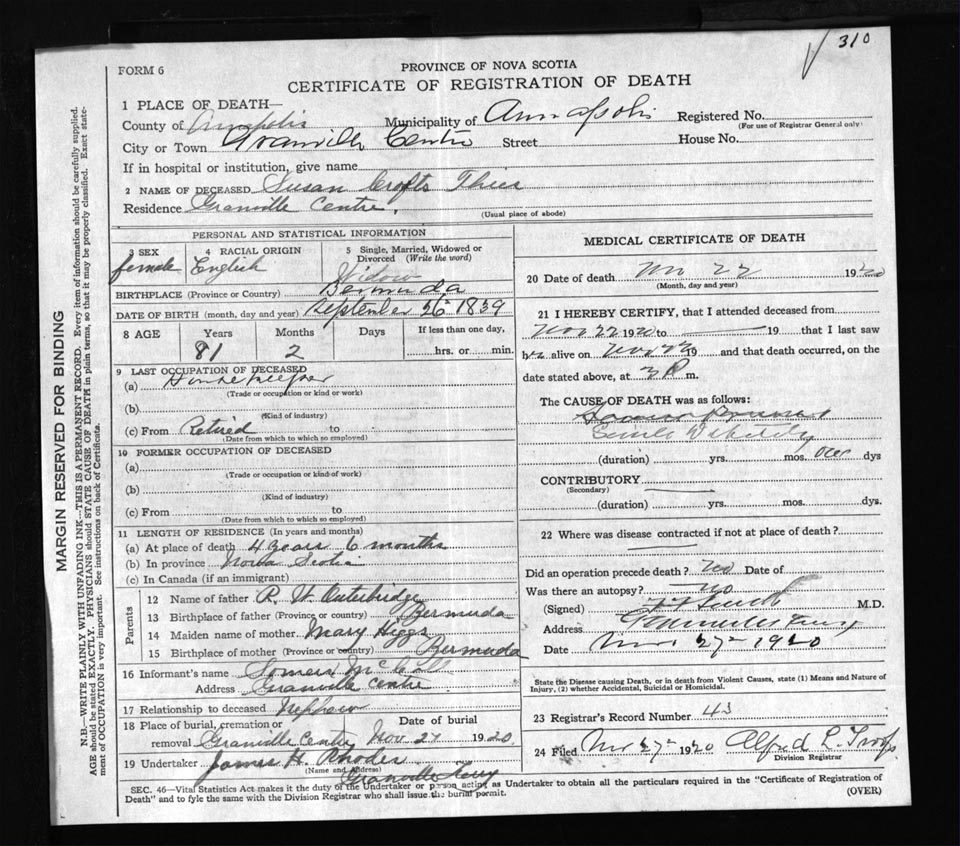 310
FORM 6
PROVINCE OF NOVA SCOTIA
CERTIFICATE OF REGISTRATION OF DEATH
1 PLACE OF DEATH—
County of Annapolis Municipality of Annapolis Registered No.
(For use of Registrar General only)
City or Town Granville Centre Street House No.
If in hospital or institution, give name
2 NAME OF DECEASED Susan Crofts
Residence Granville Centre.
(Usual place of abode)
PERSONAL AND STATISTICAL INFORMATION
3 SEX 4 RACIAL ORIGIN 5 Single, Married, Widowed or Divorced (Write the word)
female English Widow
BIRTHPLACE (Province or Country) Bermuda
DATE OF BIRTH (month, day and year) September 26 1839
8 AGE Years Months Days If less than one day,
81 2 hrs. or min.
9 LAST OCCUPATION OF DECEASED
(a) Housekeeper
(Trade or occupation or kind or work)
(b)
(Kind of industry)
(c) From Retired to
(Date from which to which so employed)
10 FORMER OCCUPATION OF DECEASED
(a)
(Trade or occupation or kind of work)
(b)
(Kind of industry)
(c) From to
(Date from which to which so employed)
11 LENGTH OF RESIDENCE (In years and months)
(a) At place of death 4 years 6 months
(b) In province Nova Scotia
(c) In Canada (if an immigrant)
Parents
12 Name of father R. W. Outerbridge
13 Birthplace of father (Province or country) Bermuda
14 Maiden name of mother Mary Higgs
15 Birthplace of mother (Province or country) Bermuda
16 Informant's name Somers
Address Granville Centre
17 Relationship to deceased Nephew
18 Place of burial, cremation or Date of burial
removal Granville Centre Nov 27 1920
19 Undertaker James H. Rhodes
(Name and Address) Granville Ferry
MEDICAL CERTIFICATE OF DEATH
20 Date of death Nov 22 1920
(Month, day and year)
21 I HEREBY CERTIFY, that I attended deceased from
Nov 22 1920 to 19 that I last saw
her alive on Nov 22 19 and that death occurred, on the
date stated above, at 3 P m.
The CAUSE OF DEATH was as follows:
Senile Debility
(duration) yrs. mos. dys
CONTRIBUTORY
(Secondary)
(duration) yrs. mos. dys.
22 Where was disease contracted if not at place of death?
Did an operation precede death? No Date of
Was there an autopsy? No
(Signed) M.D.
Address Granville Ferry
Date Nov. 27 1920
State the Disease causing Death, or in death from Violent Causes, state (1) Means and Nature of
Injury, (2) whether Accidental, Suicidal or Homicidal.
23 Registrar's Record Number 43
24 Filed Nov 27 1920 Alfred L. Troop
Division Registrar
SEC. 46—Vital Statistics Act makes it the duty of the Undertaker or person acting as Undertaker to obtain all the particulars required in the "Certificate of Registration of
Death" and to fyle the same with the Division Registrar who shall issue the burial permit.
(OVER)
MARGIN RESERVED FOR BINDING
N.B.—WRITE PLAINLY WITH UNFADING INK—THIS IS A PERMANENT RECORD. Every item of information should be carefully supplied.
AGE should be stated EXACTLY. PHYSICIANS should STATE CAUSE OF DEATH in plain terms, so that it may be properly classified. Exact state-
ment of OCCUPATION is very important. See instructions on back of Certificate.